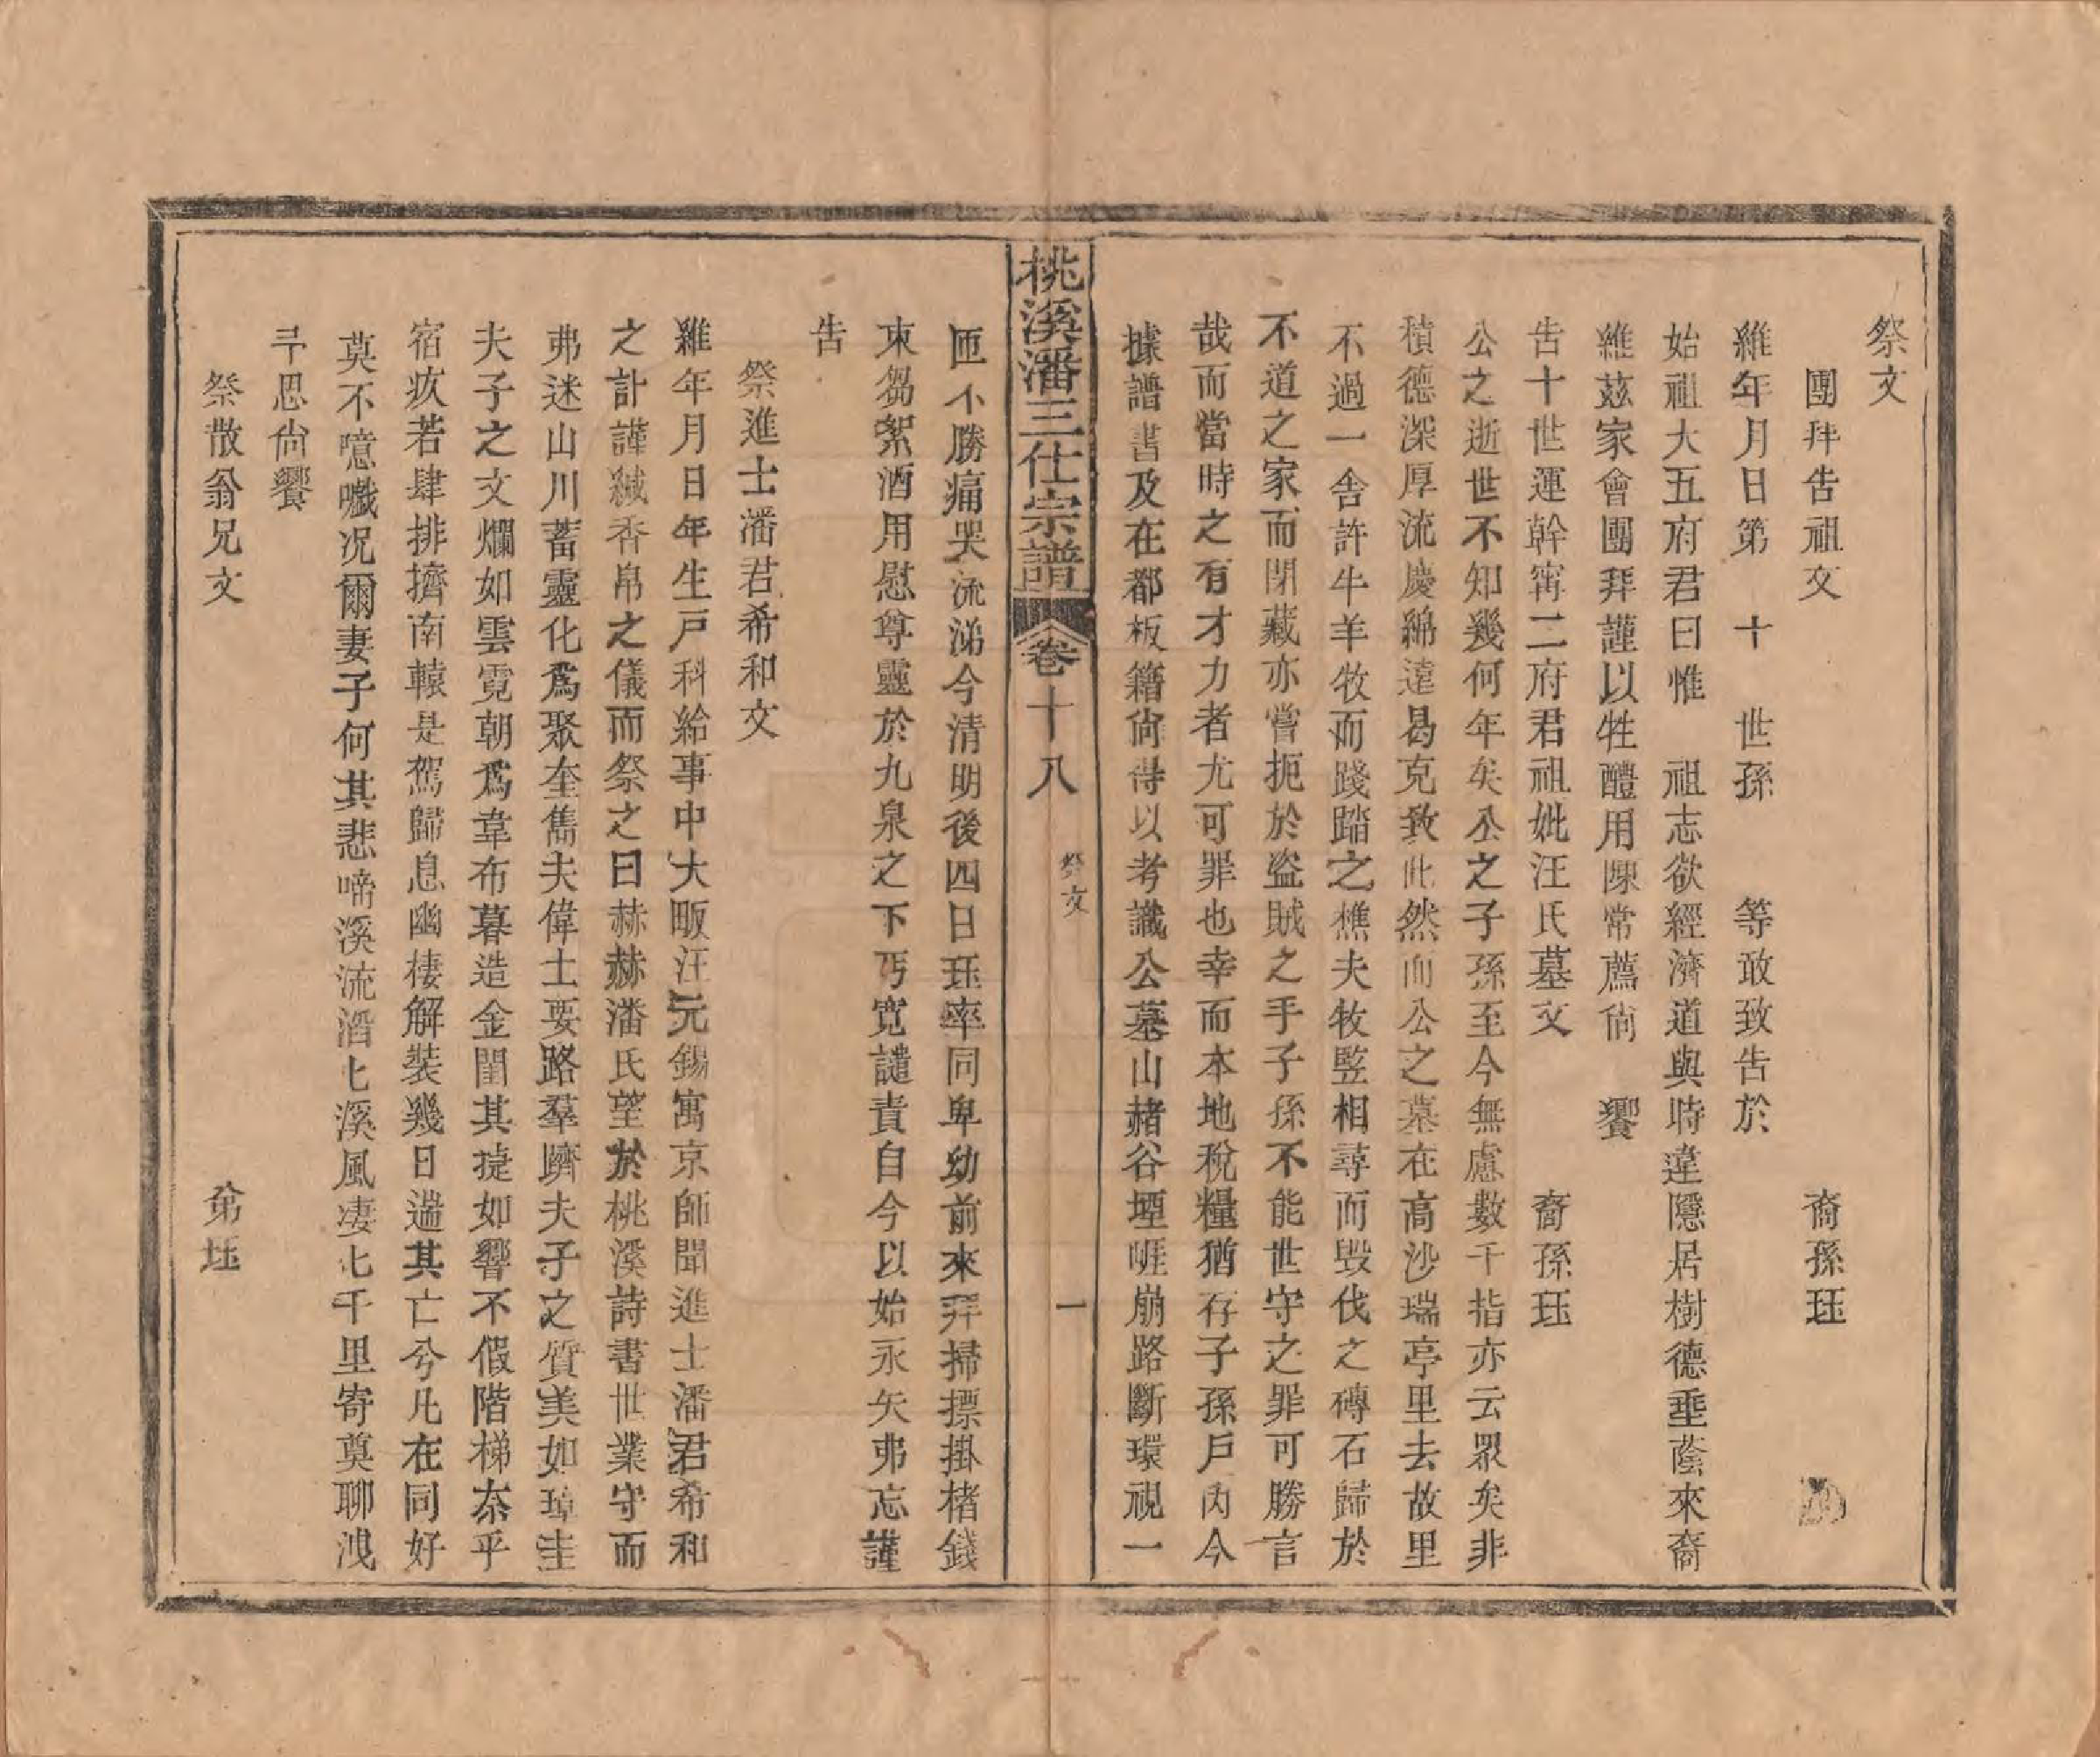 祭文
團拜告祖文 裔孫珏
維年月日第 十 世孫 等敢致告於
始祖大五府君曰惟 祖志欲經濟道與時違隱居樹德垂蔭來裔
維茲家會團拜謹以牲醴用陳常薦尚 饗
告十世運幹甯二府君祖妣汪氏墓文 裔孫珏
公之逝世不知幾何年矣公之子孫至今無慮數千指亦云眾矣非
積德深厚流慶綿遠曷克致此然而公之墓在高沙瑞亭里去故里
不過一舍許牛羊牧而踐踏之樵夫牧豎相尋而毀伐之磚石歸於
不道之家而閉藏亦嘗扼於盜賊之手子孫不能世守之罪可勝言
哉而當時之有才力者尤可罪也幸而本地稅糧猶存子孫戶內今
據譜書及在都板籍尚得以考識公墓山赭谷堙崕崩路斷環視一
桃溪潘三仕宗譜 卷十八 祭文 一
匝不勝痛哭流涕今清明後四日珏率同卑幼前來拜掃摽掛楮錢
束芻絮酒用慰尊靈於九泉之下丐寬譴責自今以始永矢弗忘謹
告
祭進士潘君希和文
維年月日年生戶科給事中大畈汪元錫寓京師聞進士潘君希和
之訃謹緘香帛之儀而祭之曰赫赫潘氏望於桃溪詩書世業守而
弗迷山川蓄靈化為聚奎雋夫偉士要路羣躋夫子之質美如璋圭
夫子之文爛如雲霓朝為韋布暮造金閨其捷如響不假階梯柰乎
宿疚若肆排擠南轅是駕歸息幽棲解裝幾日遄其亡兮凡在同好
莫不噫嚱況爾妻子何其悲啼溪流滔七溪風凄七千里寄奠聊洩
予思尚饗
祭散翁兄文 弟珏